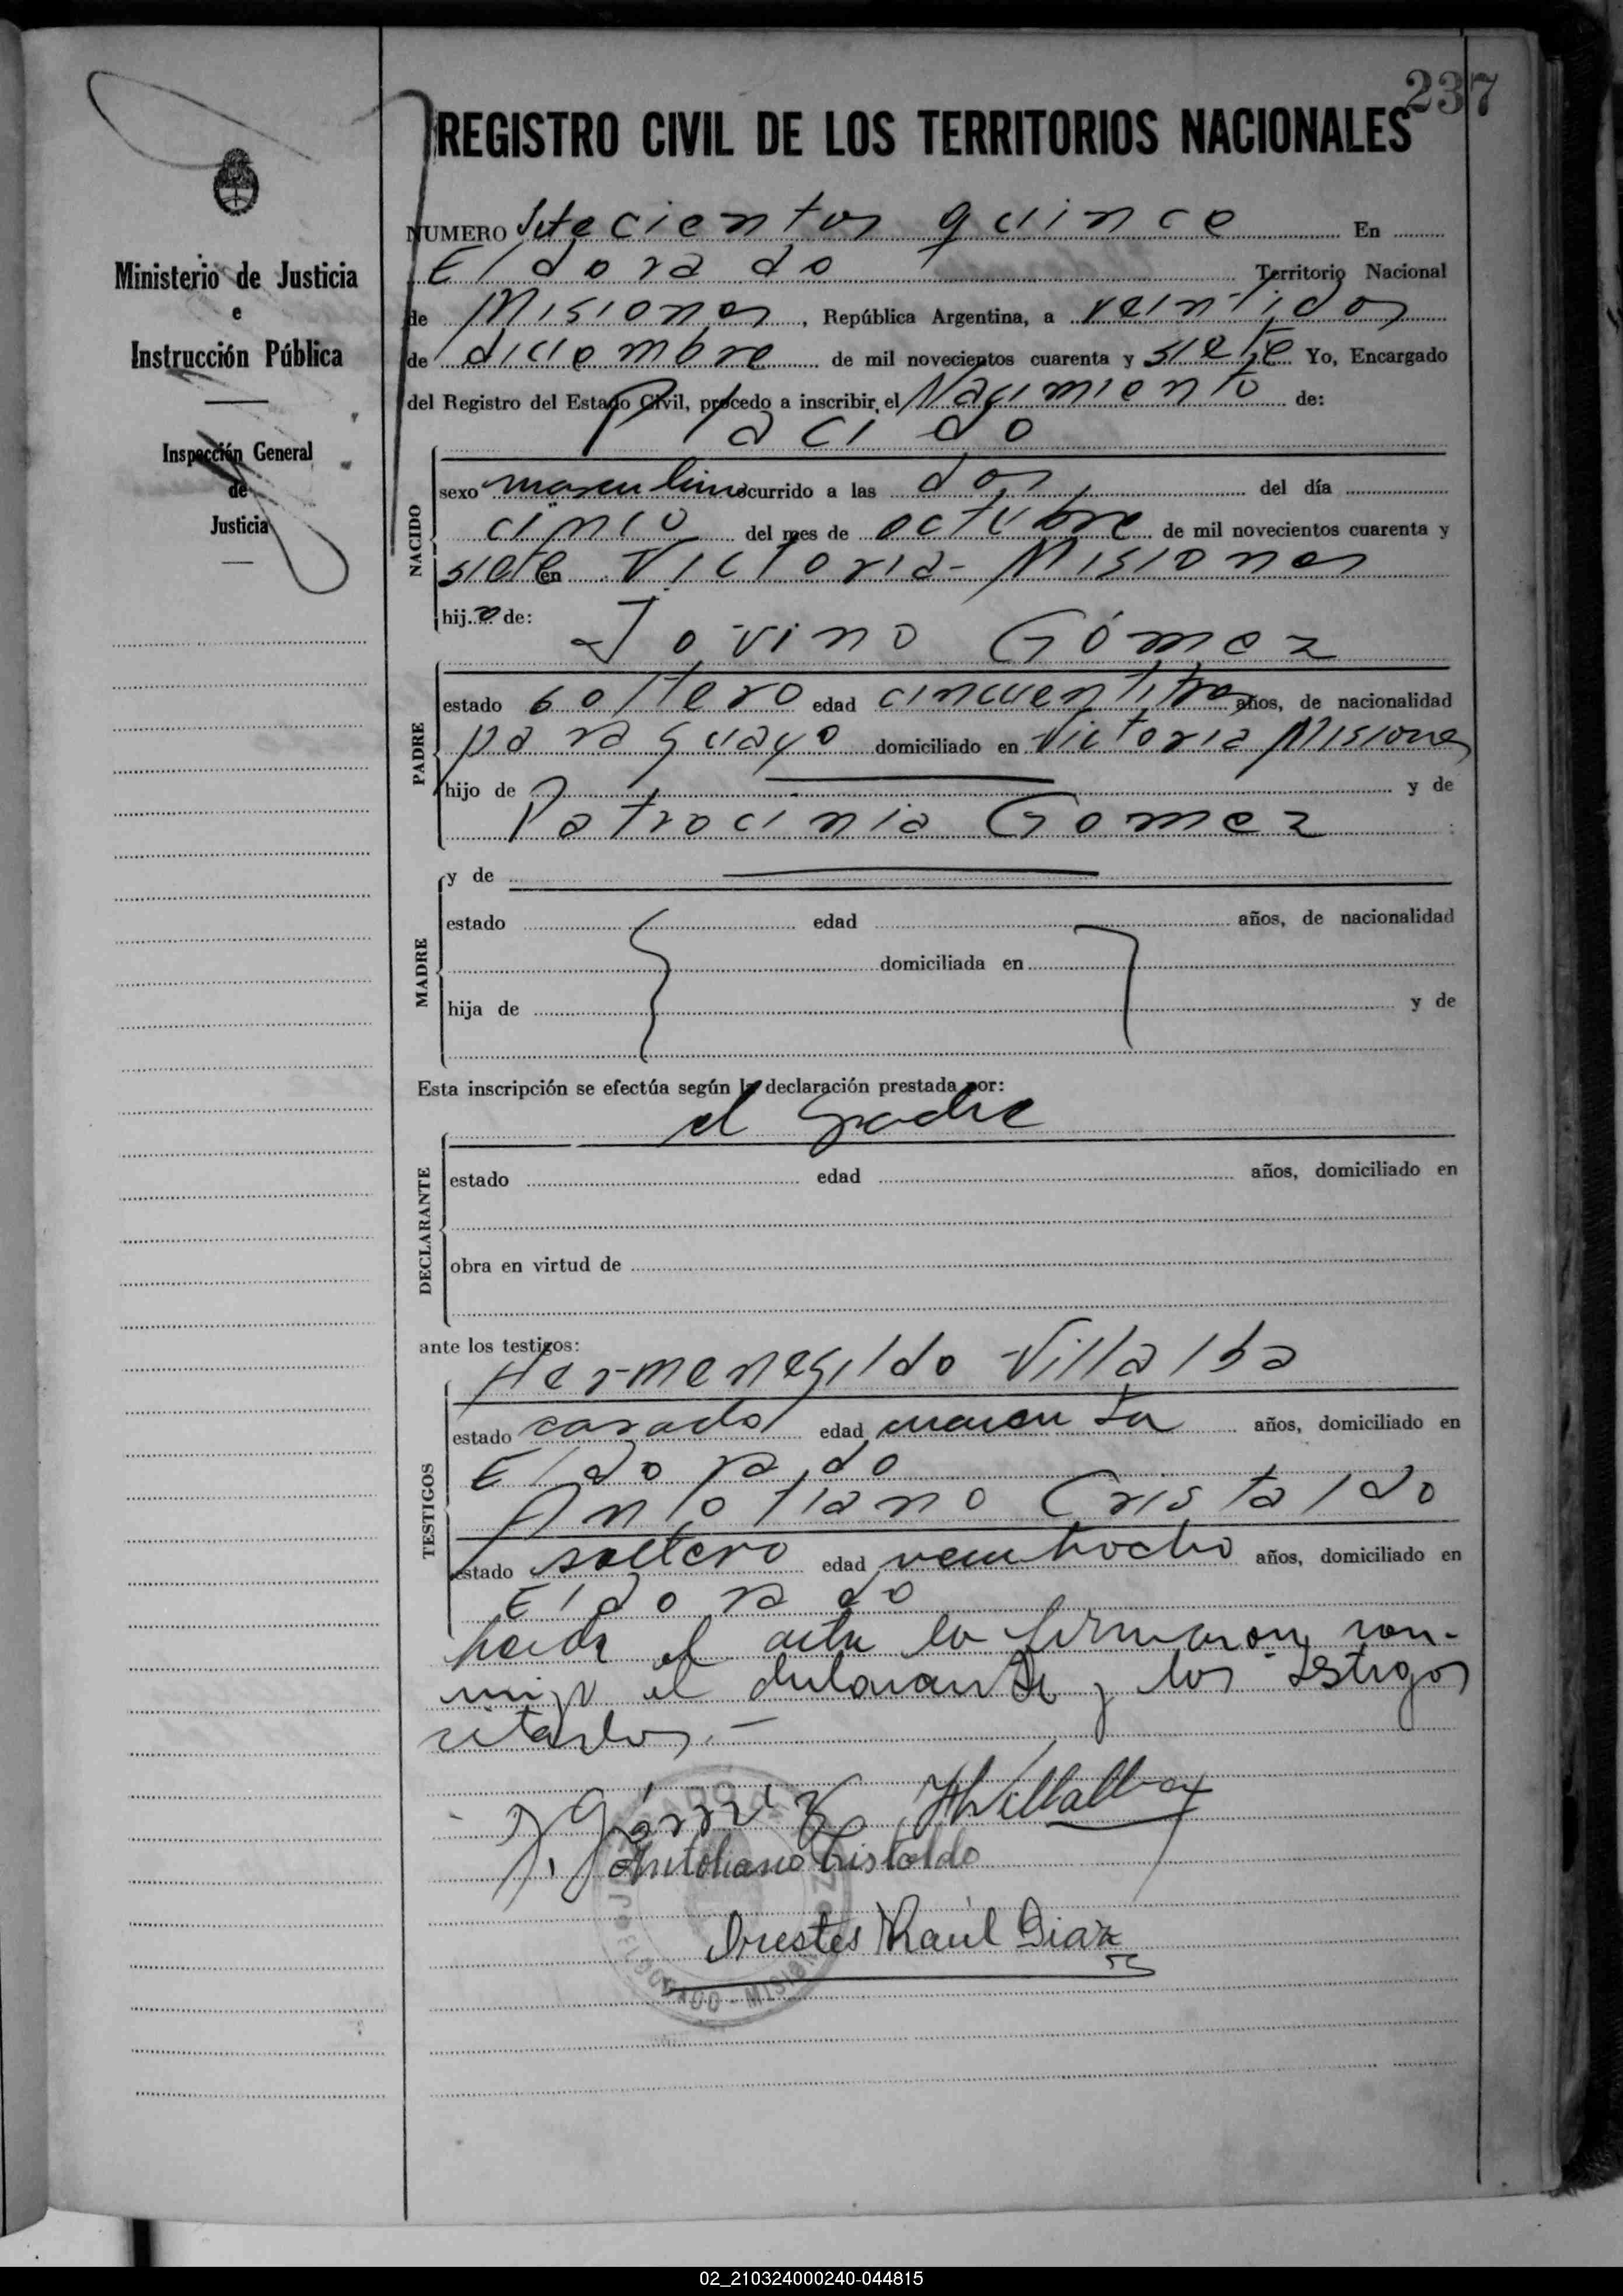 237
REGISTRO CIVIL DE LOS TERRITORIOS NACIONALES
Ministerio de Justicia
e
Instrucción Pública
Inspección General
de
Justicia
NUMERO Setecientos quince En
Eldorado Territorio Nacional
de Misiones, República Argentina, a veintidos
de diciembre de mil novecientos cuarenta y siete Yo, Encargado
del Registro del Estado Civil, procedo a inscribir el Nacimiento de:
Placido
NACIDO
sexo masculino ocurrido a las dos del día
cinco del mes de octubre de mil novecientos cuarenta y
siete en Victoria - Misiones
hijo de:
Jovino Gómez
PADRE
estado soltero edad cincuentitres años, de nacionalidad
paraguayo domiciliado en Victoria Misiones
hijo de y de
Patrocinia Gomez
y de
MADRE
estado edad años, de nacionalidad
domiciliada en
hija de y de
Esta inscripción se efectúa según la declaración prestada por:
el padre
DECLARANTE
estado edad años, domiciliado en
obra en virtud de
ante los testigos:
Hermenegildo Villalba
TESTIGOS
estado casado edad cuarenta años, domiciliado en
Eldorado
Antoliano Cristaldo
estado soltero edad veintiocho años, domiciliado en
Eldorado
leida el acta la firmaron con-
migo el declarante y los testigos
citados.-
J. Gómez HVillalba
Antoliano Cristaldo
Orestes Raúl Diaz
ELDORADO - MISIONES
02_210324000240-044815